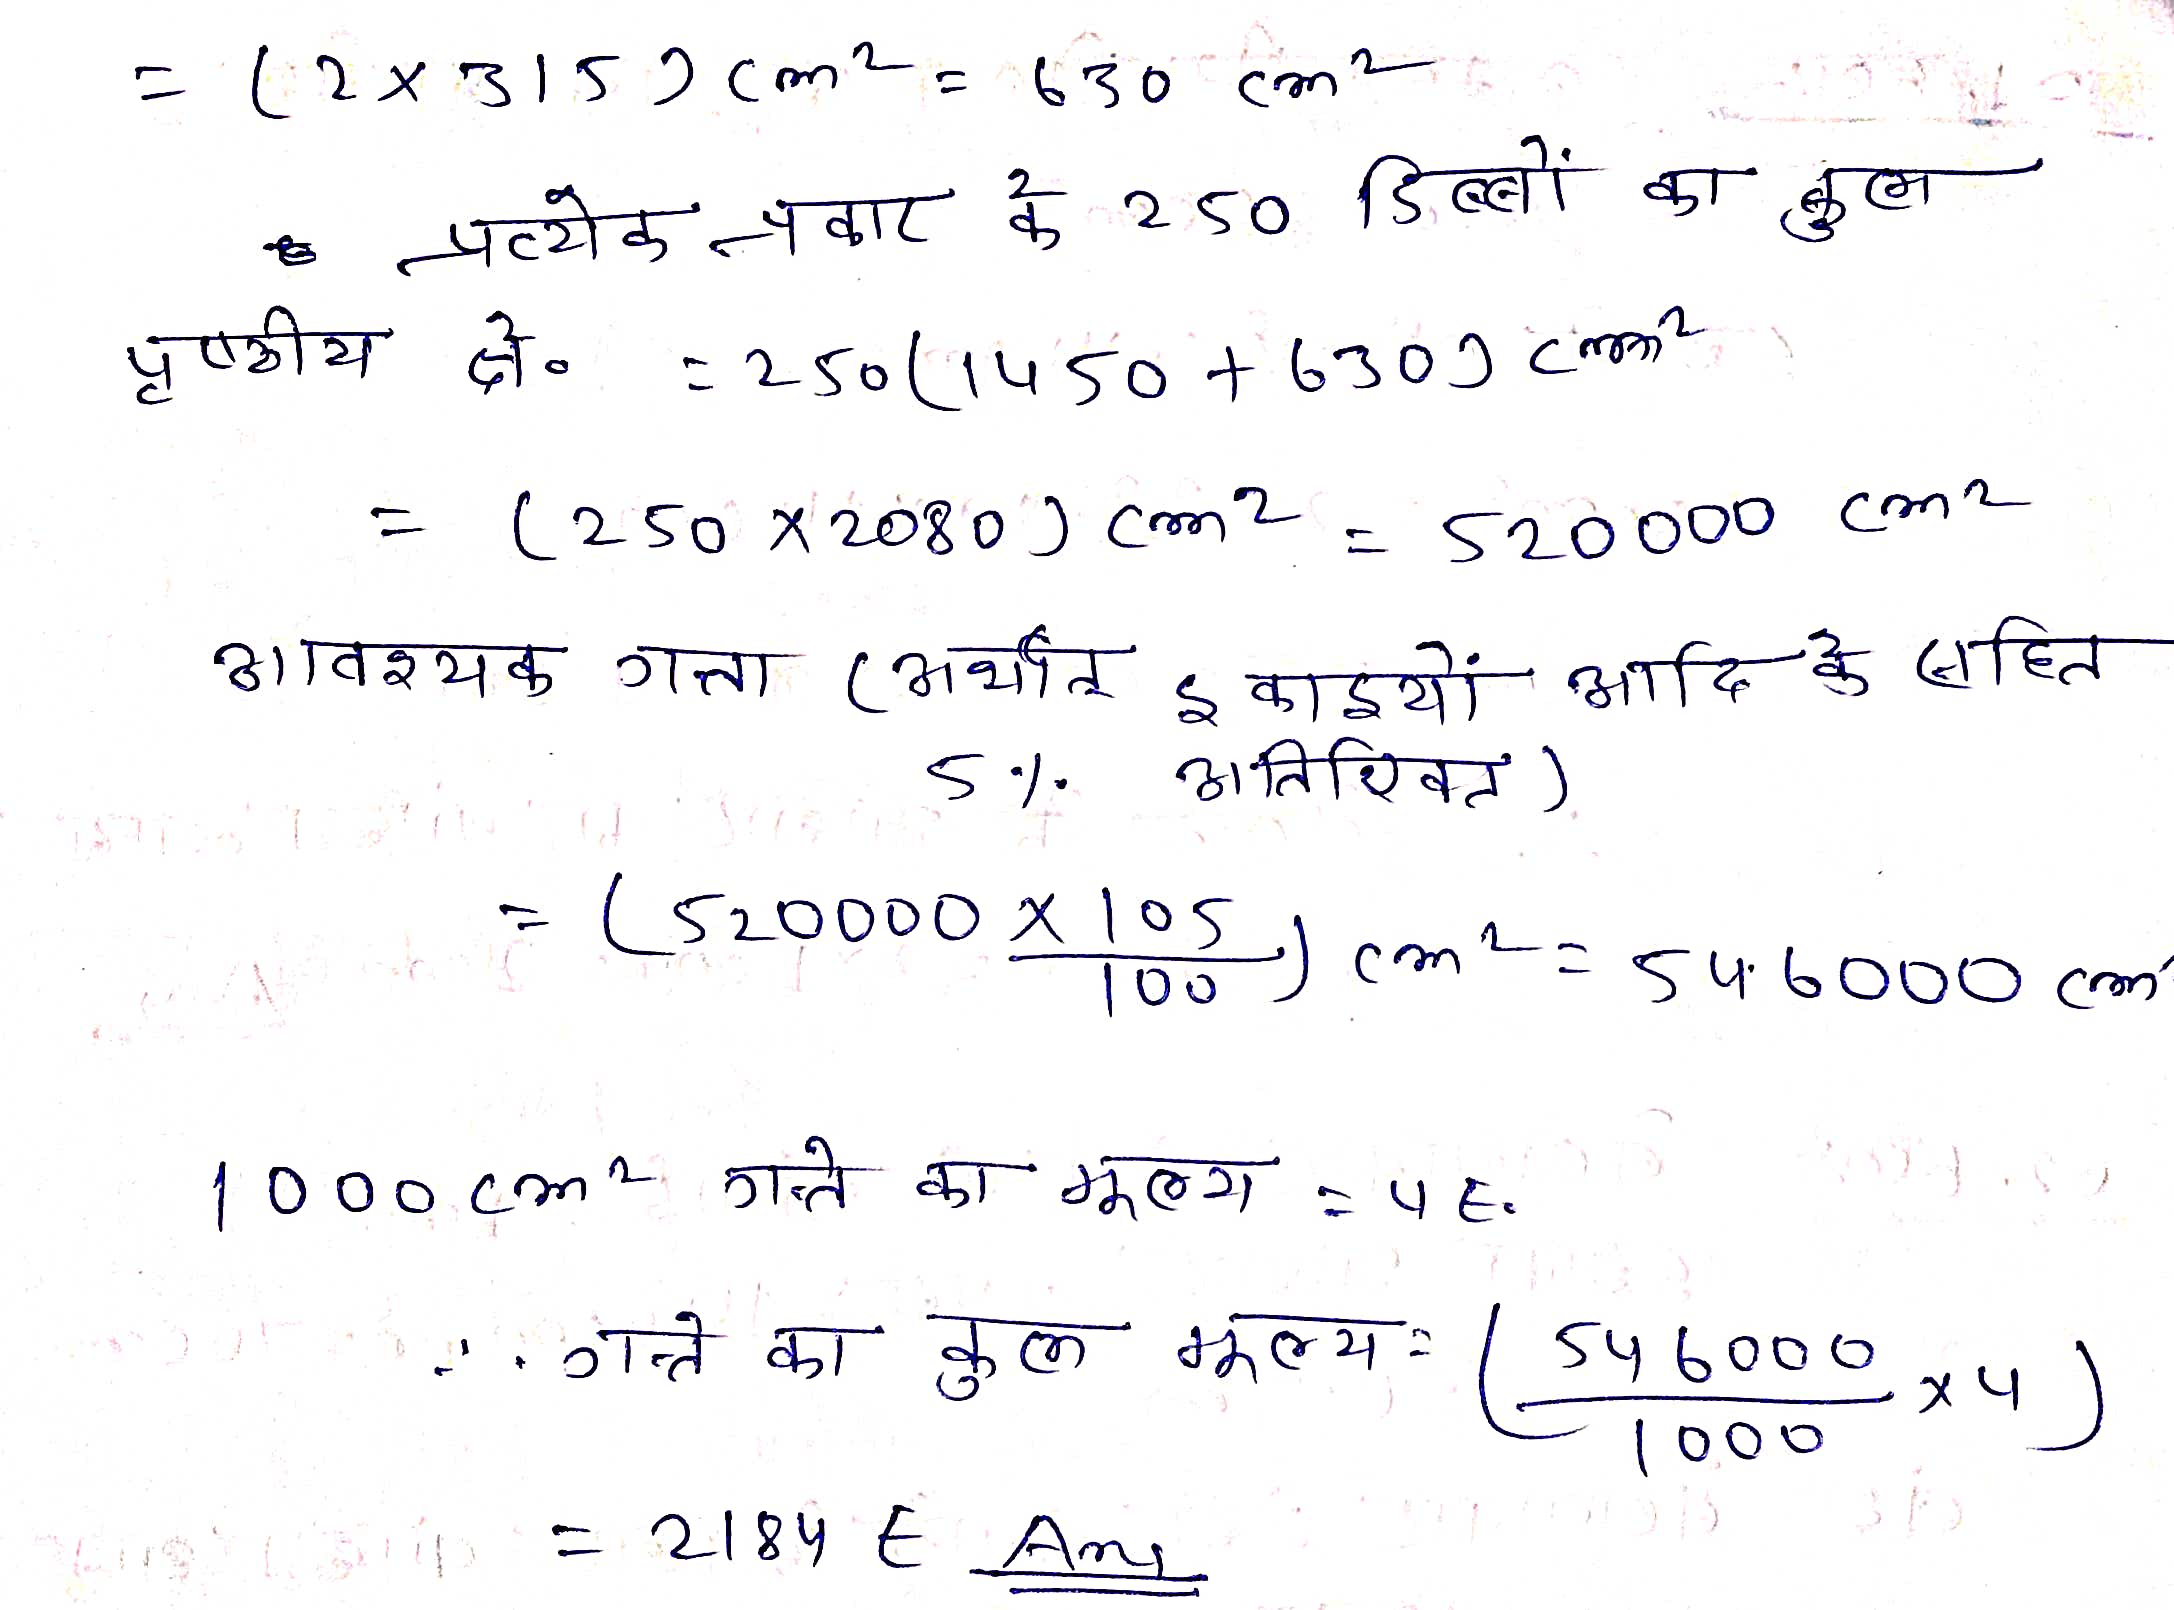 = (2 × 315) cm² = 630 cm²
प्रत्येक प्रकार के 250 डिब्बों का कुल
पृष्ठीय क्षे० = 250(1450 + 630) cm²
= (250 × 2080) cm² = 520000 cm²
आवश्यक गत्ता (अर्थात् इकाइयों आदि के सहित
5% अतिरिक्त)
= (520000 × 105/100) cm² = 546000 cm²
1000 cm² गत्ते का मूल्य = 4 ₹.
∴ गत्ते का कुल मूल्य = (546000/1000 × 4)
= 2184 ₹ Ans